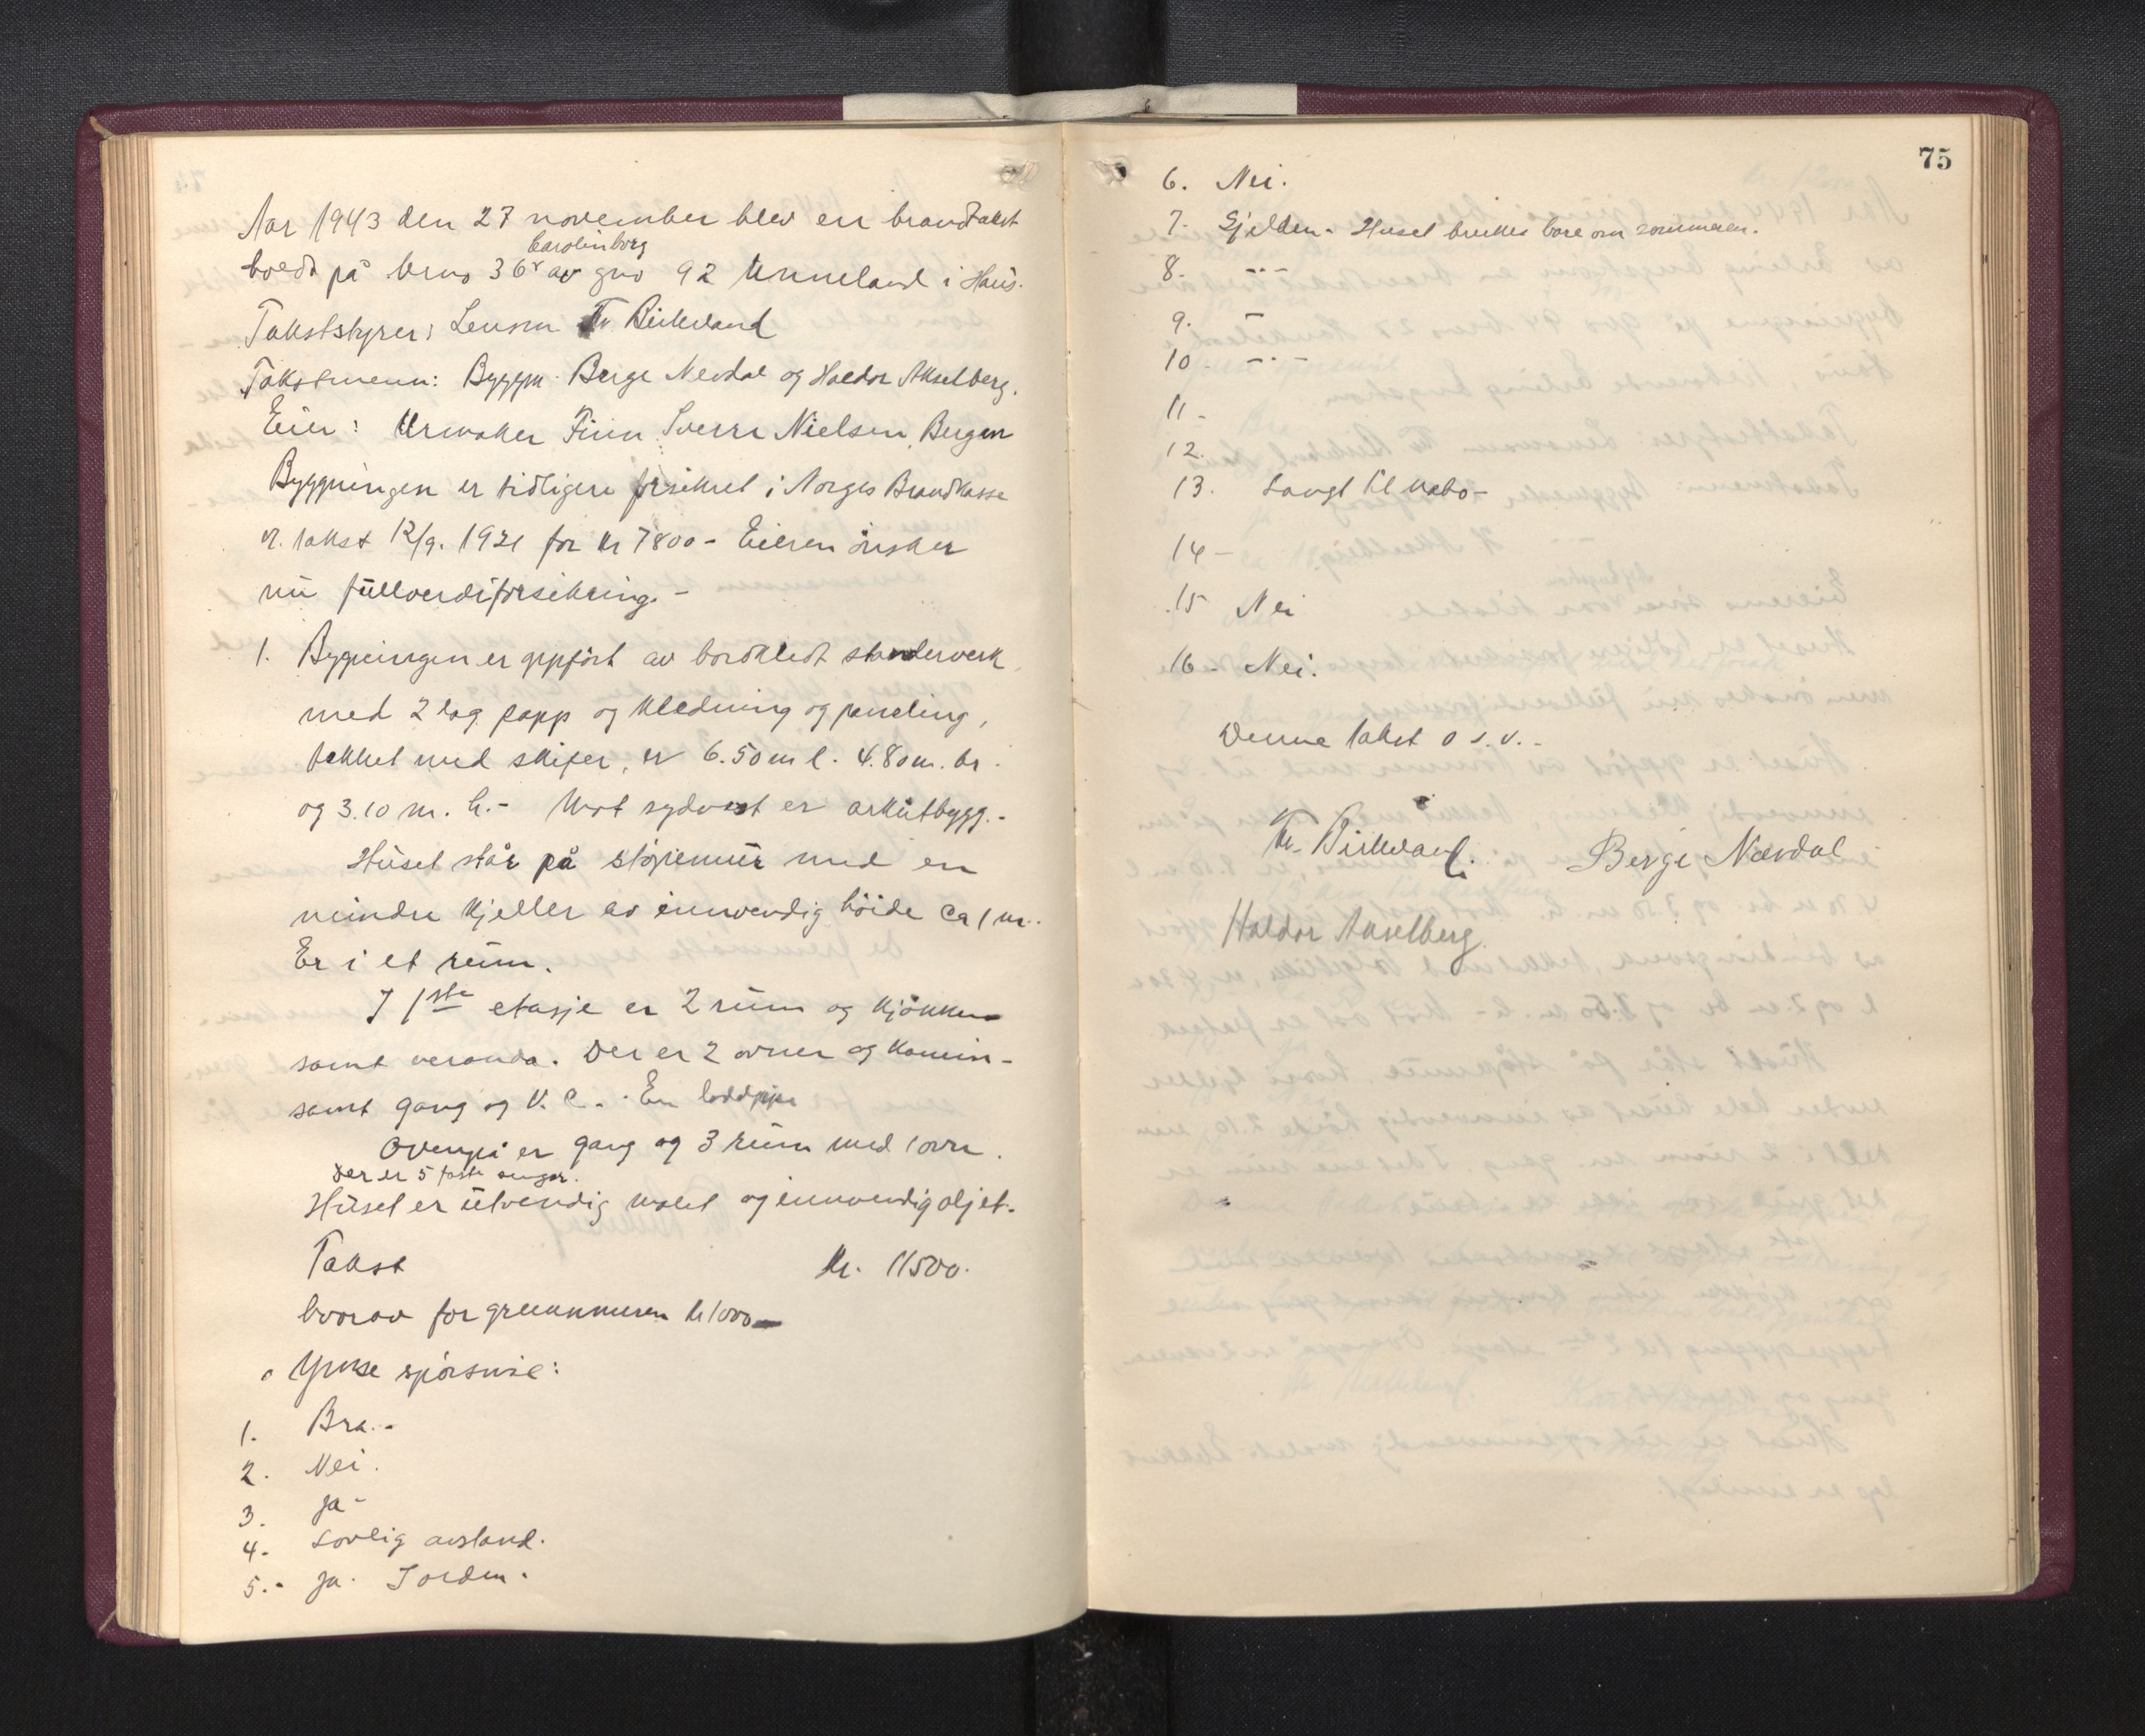 Aar 1943 den 27 november blev en brandtakst
Carolinborg
holdt på brno 36 av gno 92 Unneland i Haus.
Takststyrer: Lensm Kr. Birkeland
Takstmenn: Byggm. Berge Nevdal og Haldor Akselberg.
Eier: Urmaker Finn Sverre Nielsen, Bergen
Byggningen er tidligere forsikret i Norges Brandkasse
v. takst 12/9. 1921 for kr 7800 - Eieren ønsker
nu fullverdiforsikring. -
1. Bygningen er oppført av bordkledt standerverk
med 2 lag papp og kledning og paneling,
tekket med skifer, er 6.50 m l. 4.80 m. br.
og 3.10 m. h. - Mot sydvest er arkutbygg. -
Huset står på støpemur med en
mindre kjeller av innvendig høide ca 1 m.
Er i et rum.
I 1ste etasje er 2 rum og kjøkken
samt veranda. Der er 2 ovner og kamin -
samt gang og V. C. - En loddpipe
Ovenpå er gang og 3 rum med 1 ovn.
Der er 5 faste senger.
Huset er utvendig malt og innvendig oljet.
Takst kr. 11500.
hvorav for grunnmuren kr 1000 -
Øvrige spørsmål:
1. Bra. -
2. Nei.
3. Ja -
4. Lovlig avstand.
5. - Ja. Jorden.
75
6. Nei.
7. Sjelden. Huset brukes bare om sommeren.
8. - " -
9. -
10 - " -
11 -
12.
13. Langt til nabo -
14 -
15 Nei
16 - Nei.
Denne takst o s. v. -
Kr. Birkeland. Berge Nævdal
Haldor Akselberg.